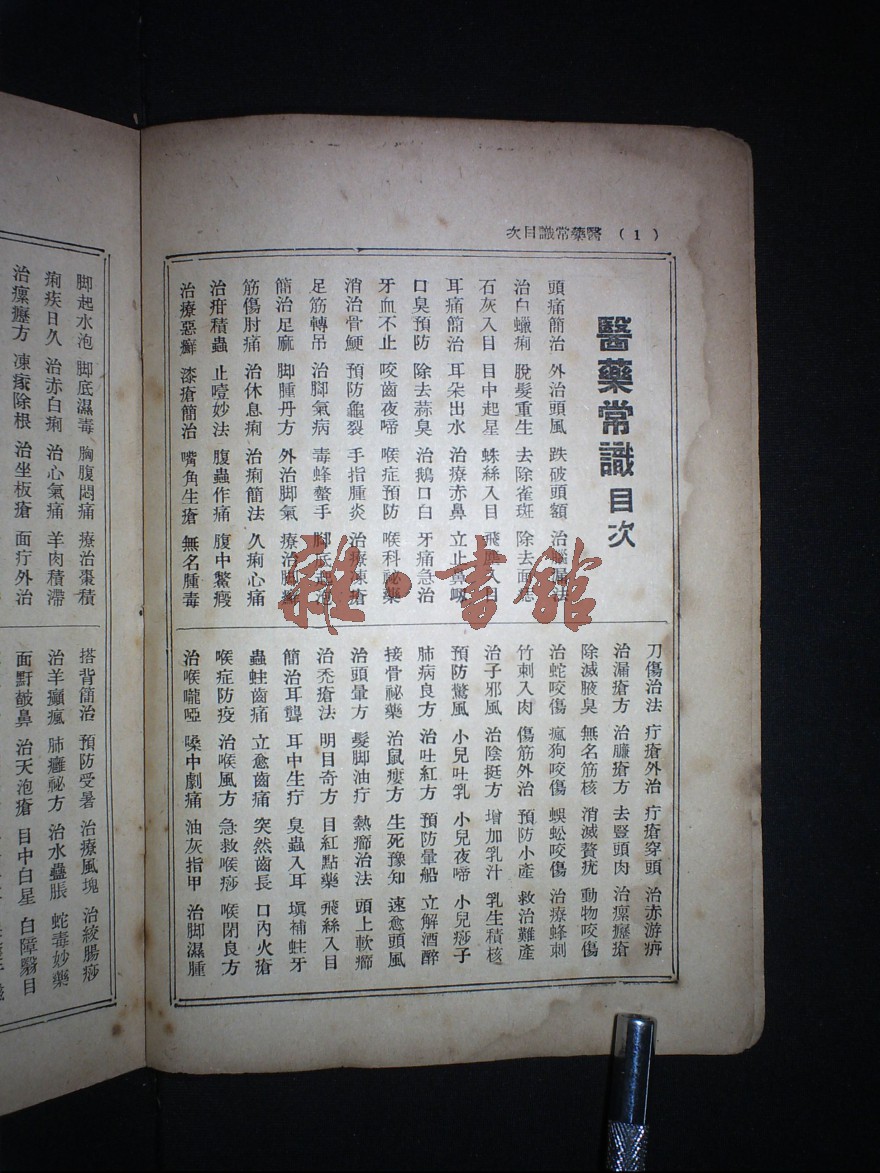 ( 1 ) 醫藥常識目次
醫藥常識目次
頭痛簡治 外治頭風 跌破頭額 治腦漏法
治白蠟痢 脫髮重生 去除雀斑 除去面痣
石灰入目 目中起星 蛛絲入目 飛塵入目
耳痛簡治 耳朵出水 治療赤鼻 立止鼻衂
口臭預防 除去蒜臭 治鵝口白 牙痛急治
牙血不止 咬齒夜啼 喉症預防 喉科祕藥
消治骨鯁 預防龜裂 手指腫炎 治療凍瘡
足筋轉吊 治脚氣病 毒蜂螫手 脚底起泡
簡治足麻 脚腫丹方 外治脚氣 療治脚癬
筋傷肘痛 治休息痢 治痢簡法 久痢心痛
治疳積蟲 止噎妙法 腹蟲作痛 腹中鱉瘕
治療惡癬 漆瘡簡治 嘴角生瘡 無名腫毒
刀傷治法 疔瘡外治 疔瘡穿頭 治赤游痹
治漏瘡方 治臁瘡方 去豎頭肉 治瘰癧瘡
除滅腋臭 無名筋核 消滅贅疣 動物咬傷
治蛇咬傷 瘋狗咬傷 蜈蚣咬傷 治療蜂刺
竹刺入肉 傷筋外治 預防小產 救治難產
治子邪風 治陰挺方 增加乳汁 乳生積核
預防驚風 小兒吐乳 小兒夜啼 小兒痧子
肺病良方 治吐紅方 預防暈船 立解酒醉
接骨祕藥 治鼠瘻方 生死豫知 速愈頭風
治頭暈方 髮脚油疔 熱癤治法 頭上軟癤
治禿瘡法 明目奇方 目紅點藥 飛絲入目
簡治耳聾 耳中生疔 臭蟲入耳 塡補蛀牙
蟲蛀齒痛 立愈齒痛 突然齒長 口內火瘡
喉症防疫 治喉風方 急救喉痧 喉閉良方
治喉嚨啞 嗓中劇痛 油灰指甲 治脚濕腫
脚起水泡 脚底濕毒 胸腹悶痛 療治棗積
痢疾日久 治赤白痢 治心氣痛 羊肉積滯
治瘰癧方 凍瘃除根 治坐板瘡 面疔外治
搭背簡治 預防受暑 治療風塊 治絞腸痧
治羊癲瘋 肺癰祕方 治水蠱脹 蛇毒妙藥
面䵟皶鼻 治天泡瘡 目中白星 白障翳目
雜·書館